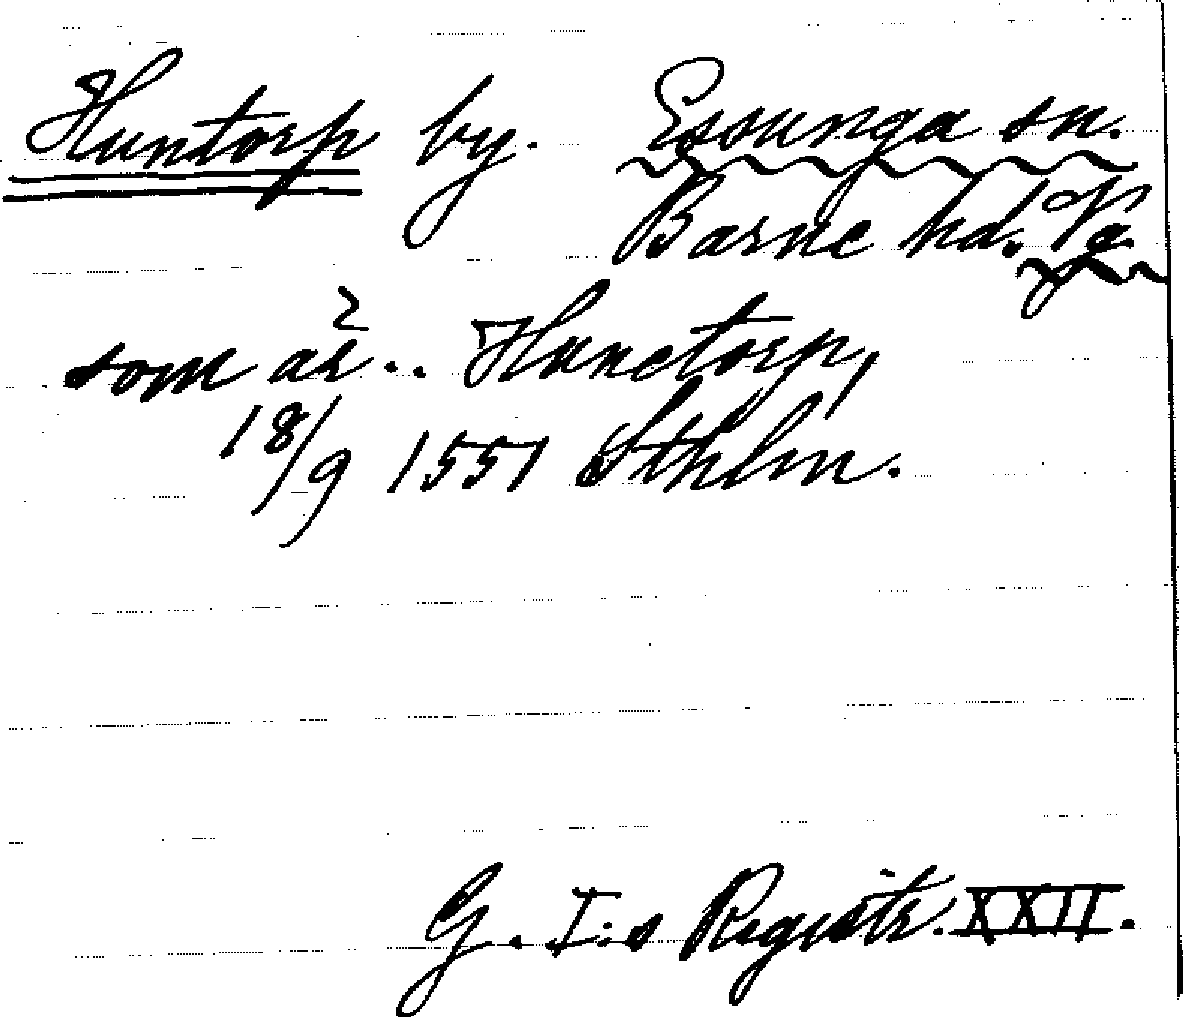 Huntorp by. Essunga sn.
Barne hd. Vg.
som är .. Hunetorp,
18/9 1551 Sthlm.
G. I:s Registr. XXII.